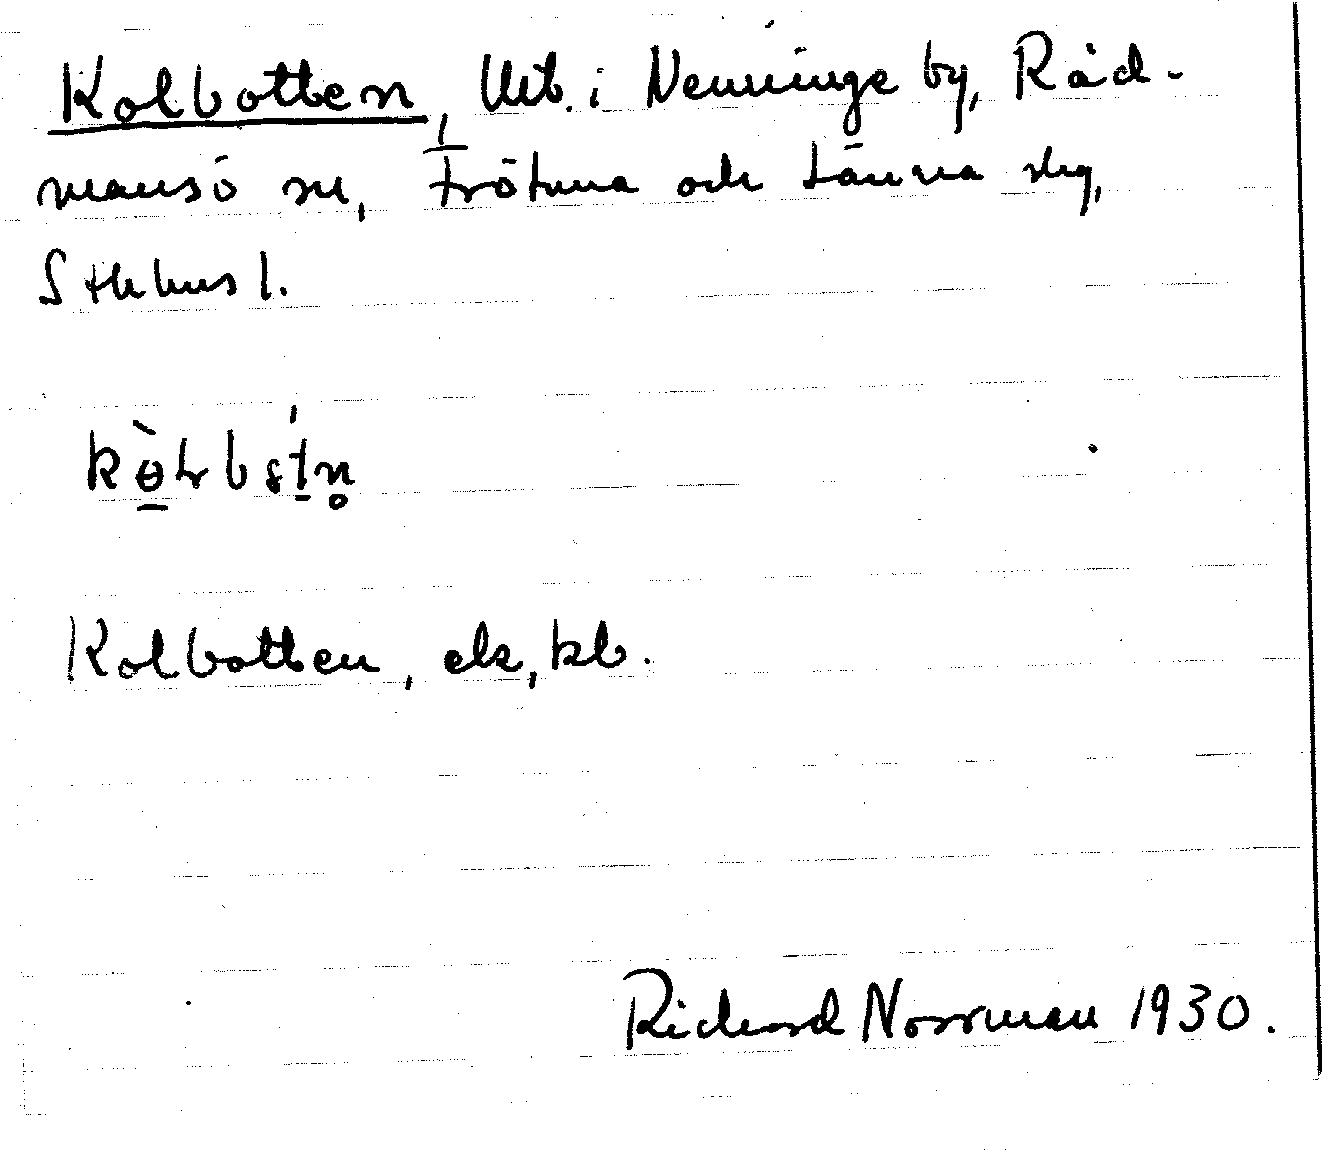 Kolbotten, Utb. i Nenninge by, Råd-
mansö sn, Frötuna och Länna slg,
Sthlms l.
Kolbotten, ek, kb.
Richard Norrman 1930.